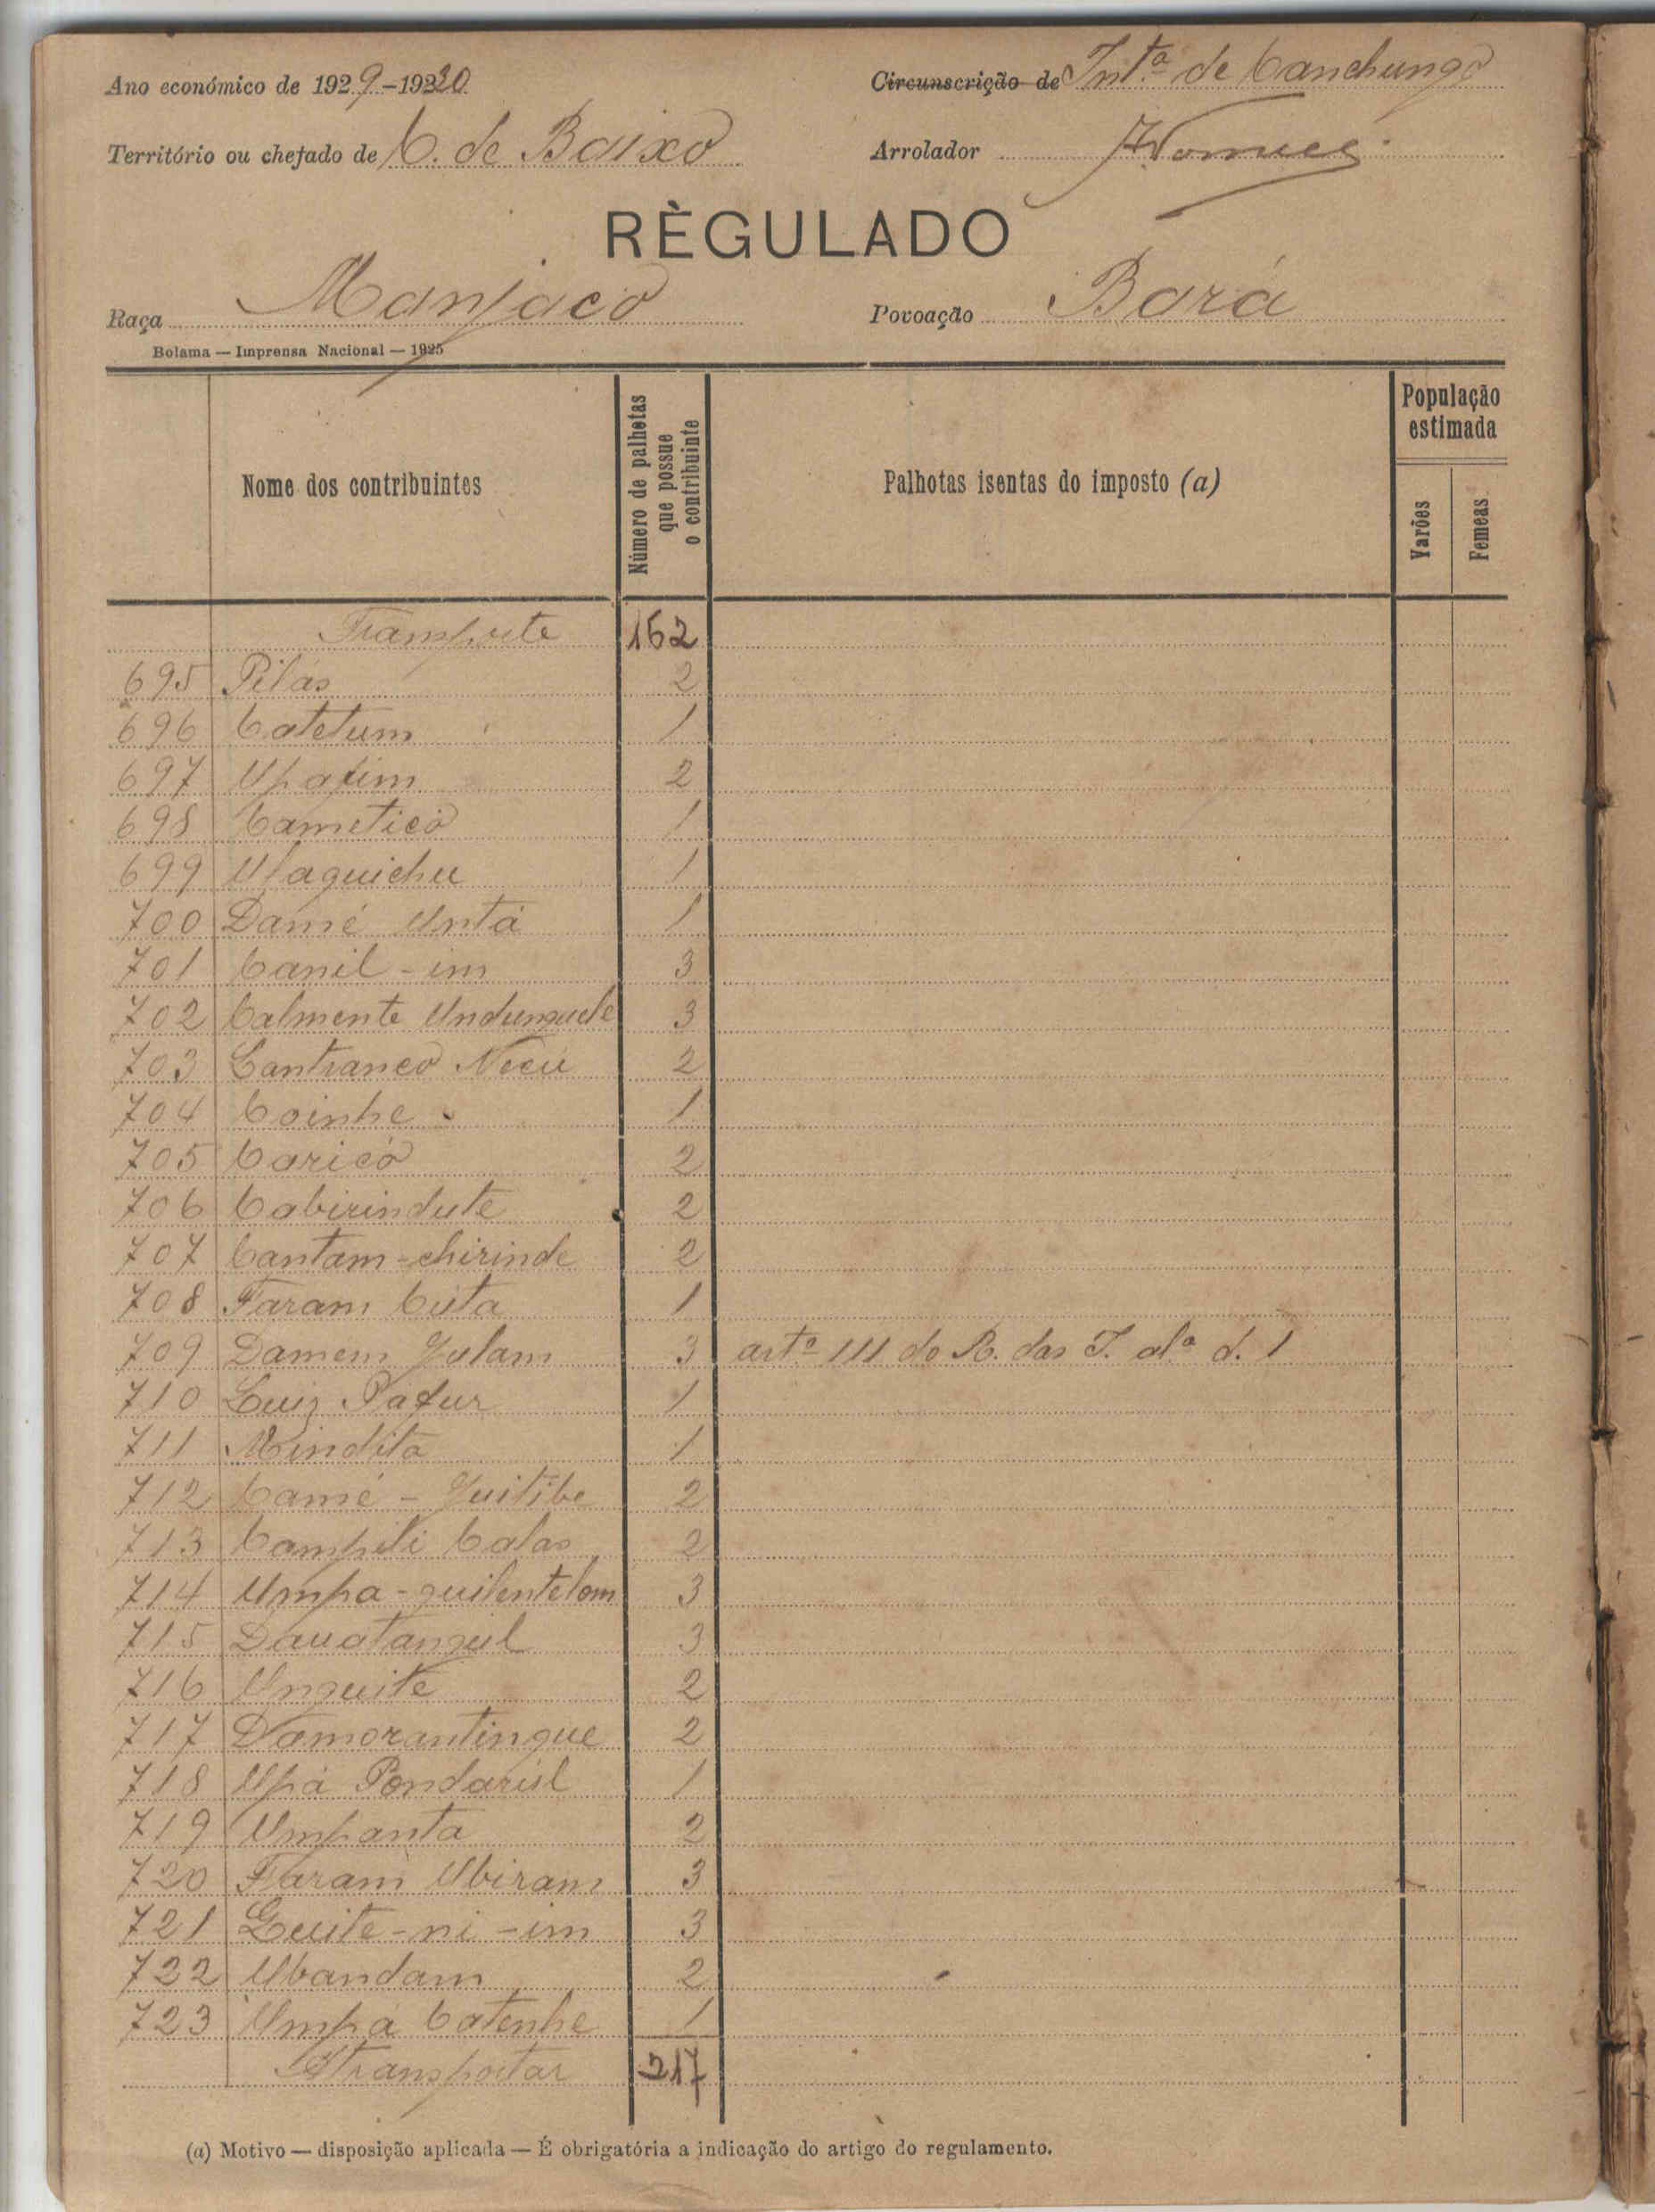 Ano económico de 1929-1930
Circunscrição de Intª de Canchungo
Território ou chefado de C. de Baixo
Arrolador
RÈGULADO
Raça Manjaco
Povoação Bará
Bolama — Imprensa Nacional — 1925
Nome dos contribuintes
Número de palhetas que possue o contribuinte
Palhotas isentas do imposto (a)
População estimada
Varões
Femeas
Transporte 162
695 Pilás 2
696 Catetum 1
697 Upafim 2
698 Cameticó 1
699 Ulaquichu 1
700 Damé Untá 1
701 Canil-im 3
702 Calmente Undunguele 3
703 Cantranco Necú 2
704 Coinhe 1
705 Caricó 2
706 Cabirindute 2
707 Cantam-chirinde 2
708 Faram Cúta 1
709 Damem Julam 3 artº 111 do R. das I. alª d. 1
710 Luiz Pafur 1
711 Mindita 1
712 Camé - Quitibe 2
713 Campili Calas 2
714 Umpa-quilentelom 3
715 Dauatanguil 3
716 Unguite 2
717 Damorantingue 2
718 Upá Pondarúl 1
719 Umpanta 2
720 Faram Ubiram 3
721 Quite-ni-im 3
722 Ubandam 2
723 Umpá Catenhe 1
A transportar 217
(a) Motivo — disposição aplicada — É obrigatória a indicação do artigo do regulamento.